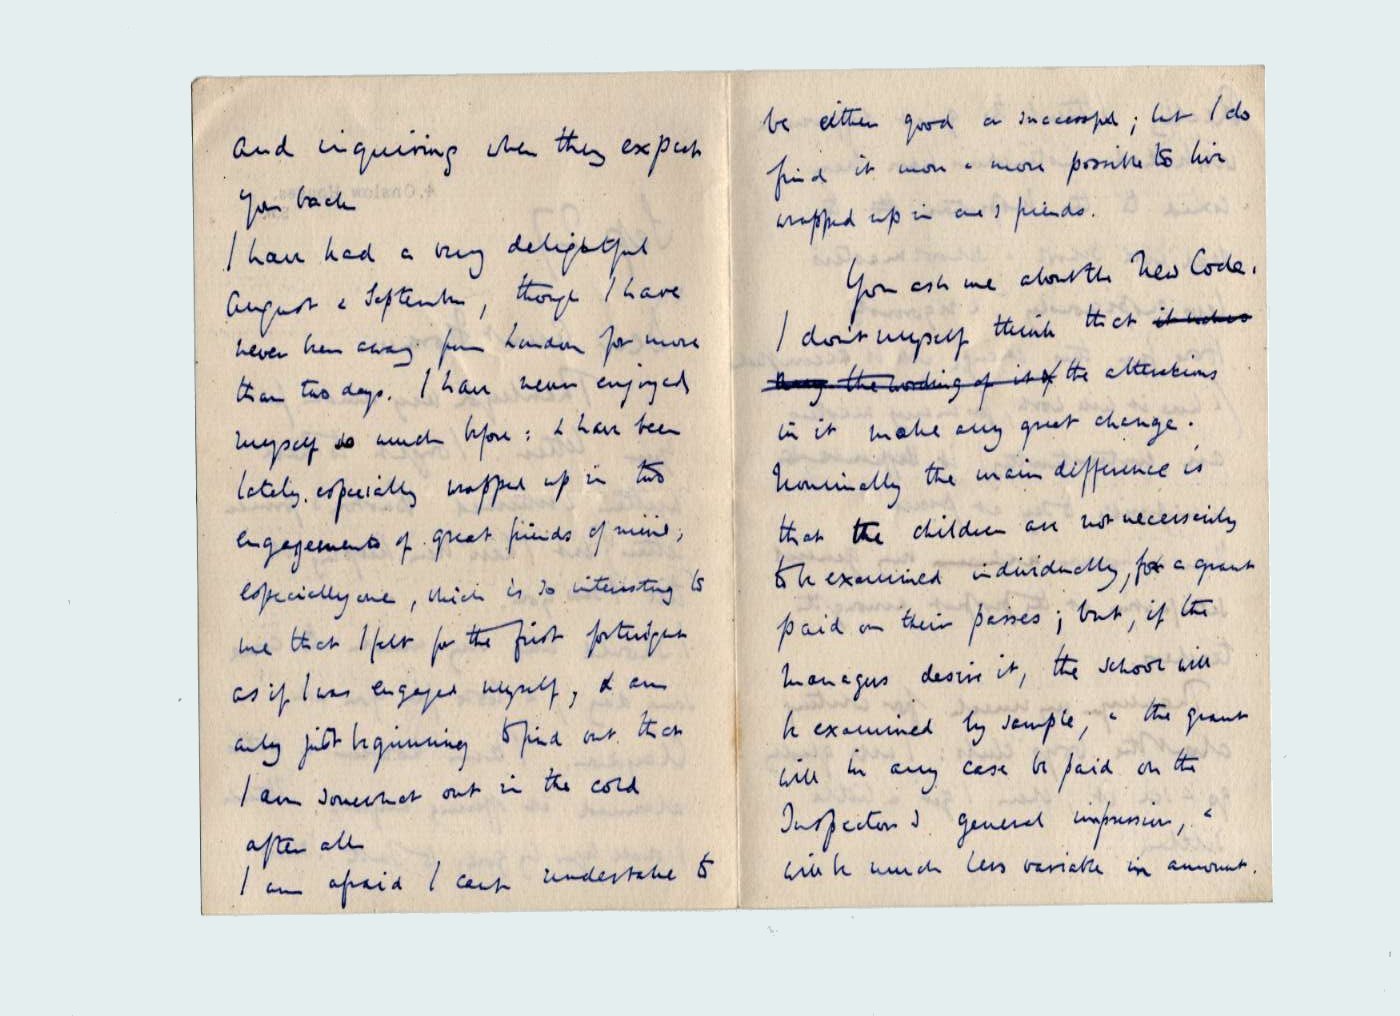 and inquiring when they expect
you back
I have had a very delightful
August & September, though I have
never been away from London for more
than two days. I have never enjoyed
myself so much before: & have been
lately, especially wrapped up in two
engagements of great friends of mine;
especially one, which is so interesting to
me that I felt for the first fortnight
as if I was engaged myself, & am
only just beginning to find out that
I am somewhat out in the cold
after all
I am afraid I cant undertake to
be either good or successful; but I do
find it more & more possible to live
wrapped up in one's friends.
You ask me about the New Code.
I don't myself think that it makes
any the wording of it the alterations
in it make any great change.
Nominally the main difference is
that the children are not necessarily
to be examined individually, for a grant
paid on their passes; but, if the
managers desire it, the school will
be examined by sample, & the grant
will in any case be paid on the
Inspector's general impression, &
will be much less variable in amount.